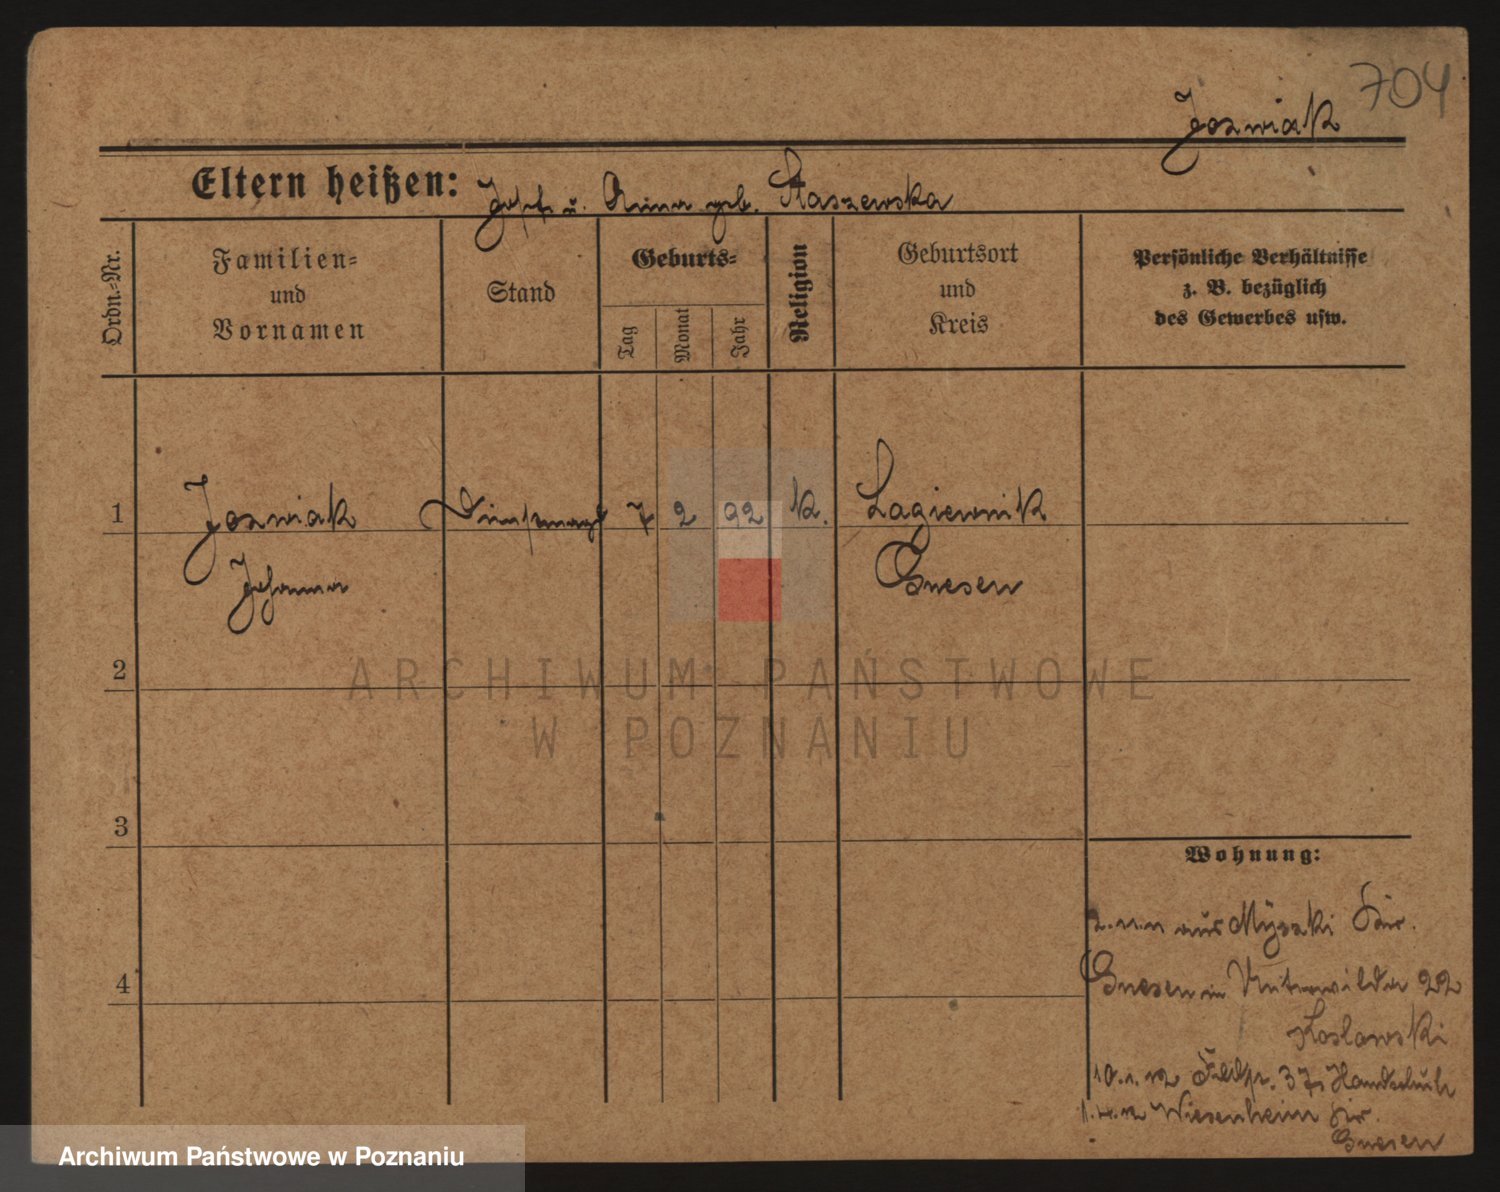 704
Joswiak
Eltern heißen: Josef u. Anna geb. Staszewska
Ordn.-Nr.
Familien-
und
Vornamen
Stand
Geburts-
Tag
Monat
Jahr
Religion
Geburtsort
und
Kreis
Persönliche Verhältnisse
z. B. bezüglich
des Gewerbes usw.
1 Joswiak Dienstmagd 7 2 92 K. Lagiewnik
Johanna Gnesen
2
3
4
Wohnung:
aus Myszki Kr.
Gnesen in Unterwilda 22
Koslowski
10.1.12 Feldstr. 37 Handschuh
1.4.12 Wiesenheim Kr.
Gnesen
ARCHIWUM PAŃSTWOWE
W POZNANIU
Archiwum Państwowe w Poznaniu